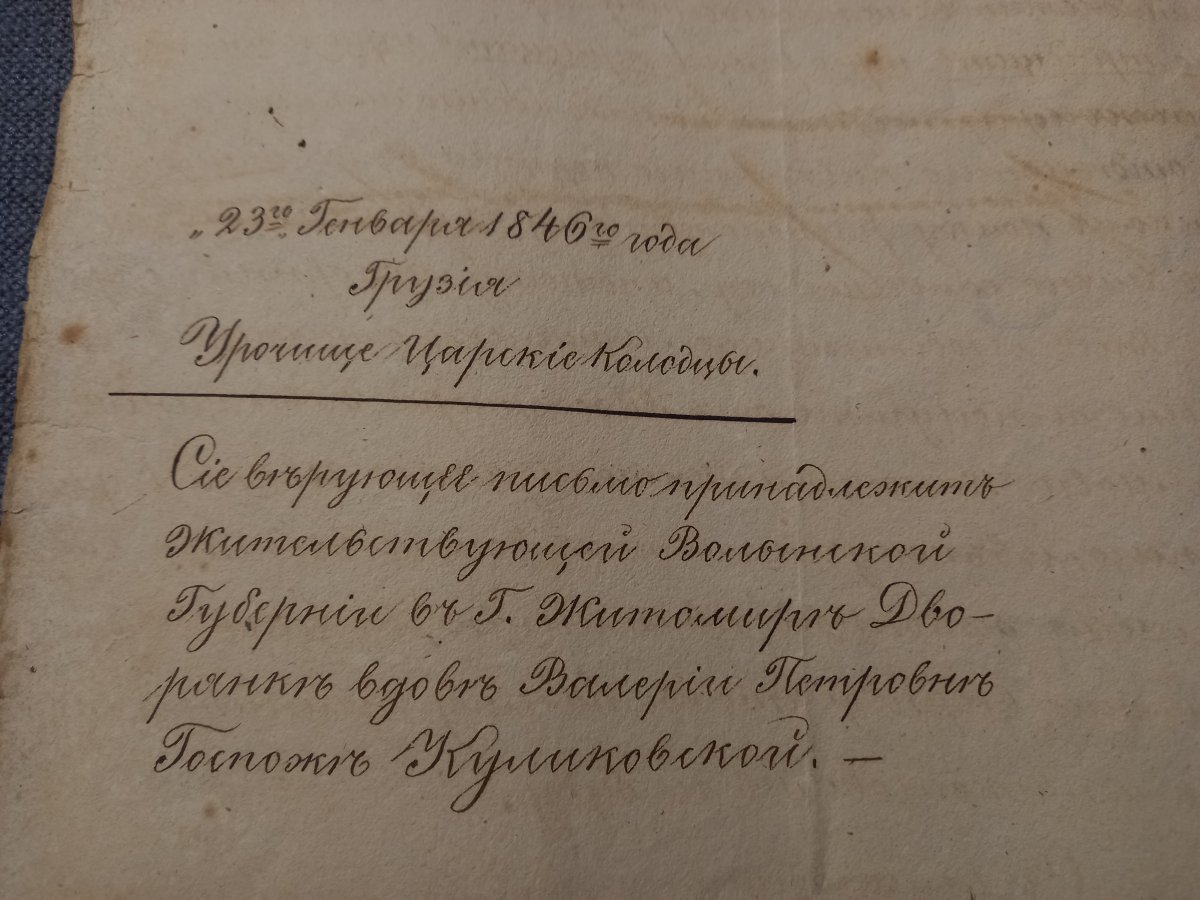 „23го Генваря 1846го года
Грузія
Урочище Царскіе Колодцы.
Сіе вѣрующее письмо принадлежитъ
Жительствующей Волынской
Губерніи въ Г. Житомирѣ Дво-
рянкѣ вдовѣ Валеріи Петровнѣ
Госпожѣ Куликовской. —